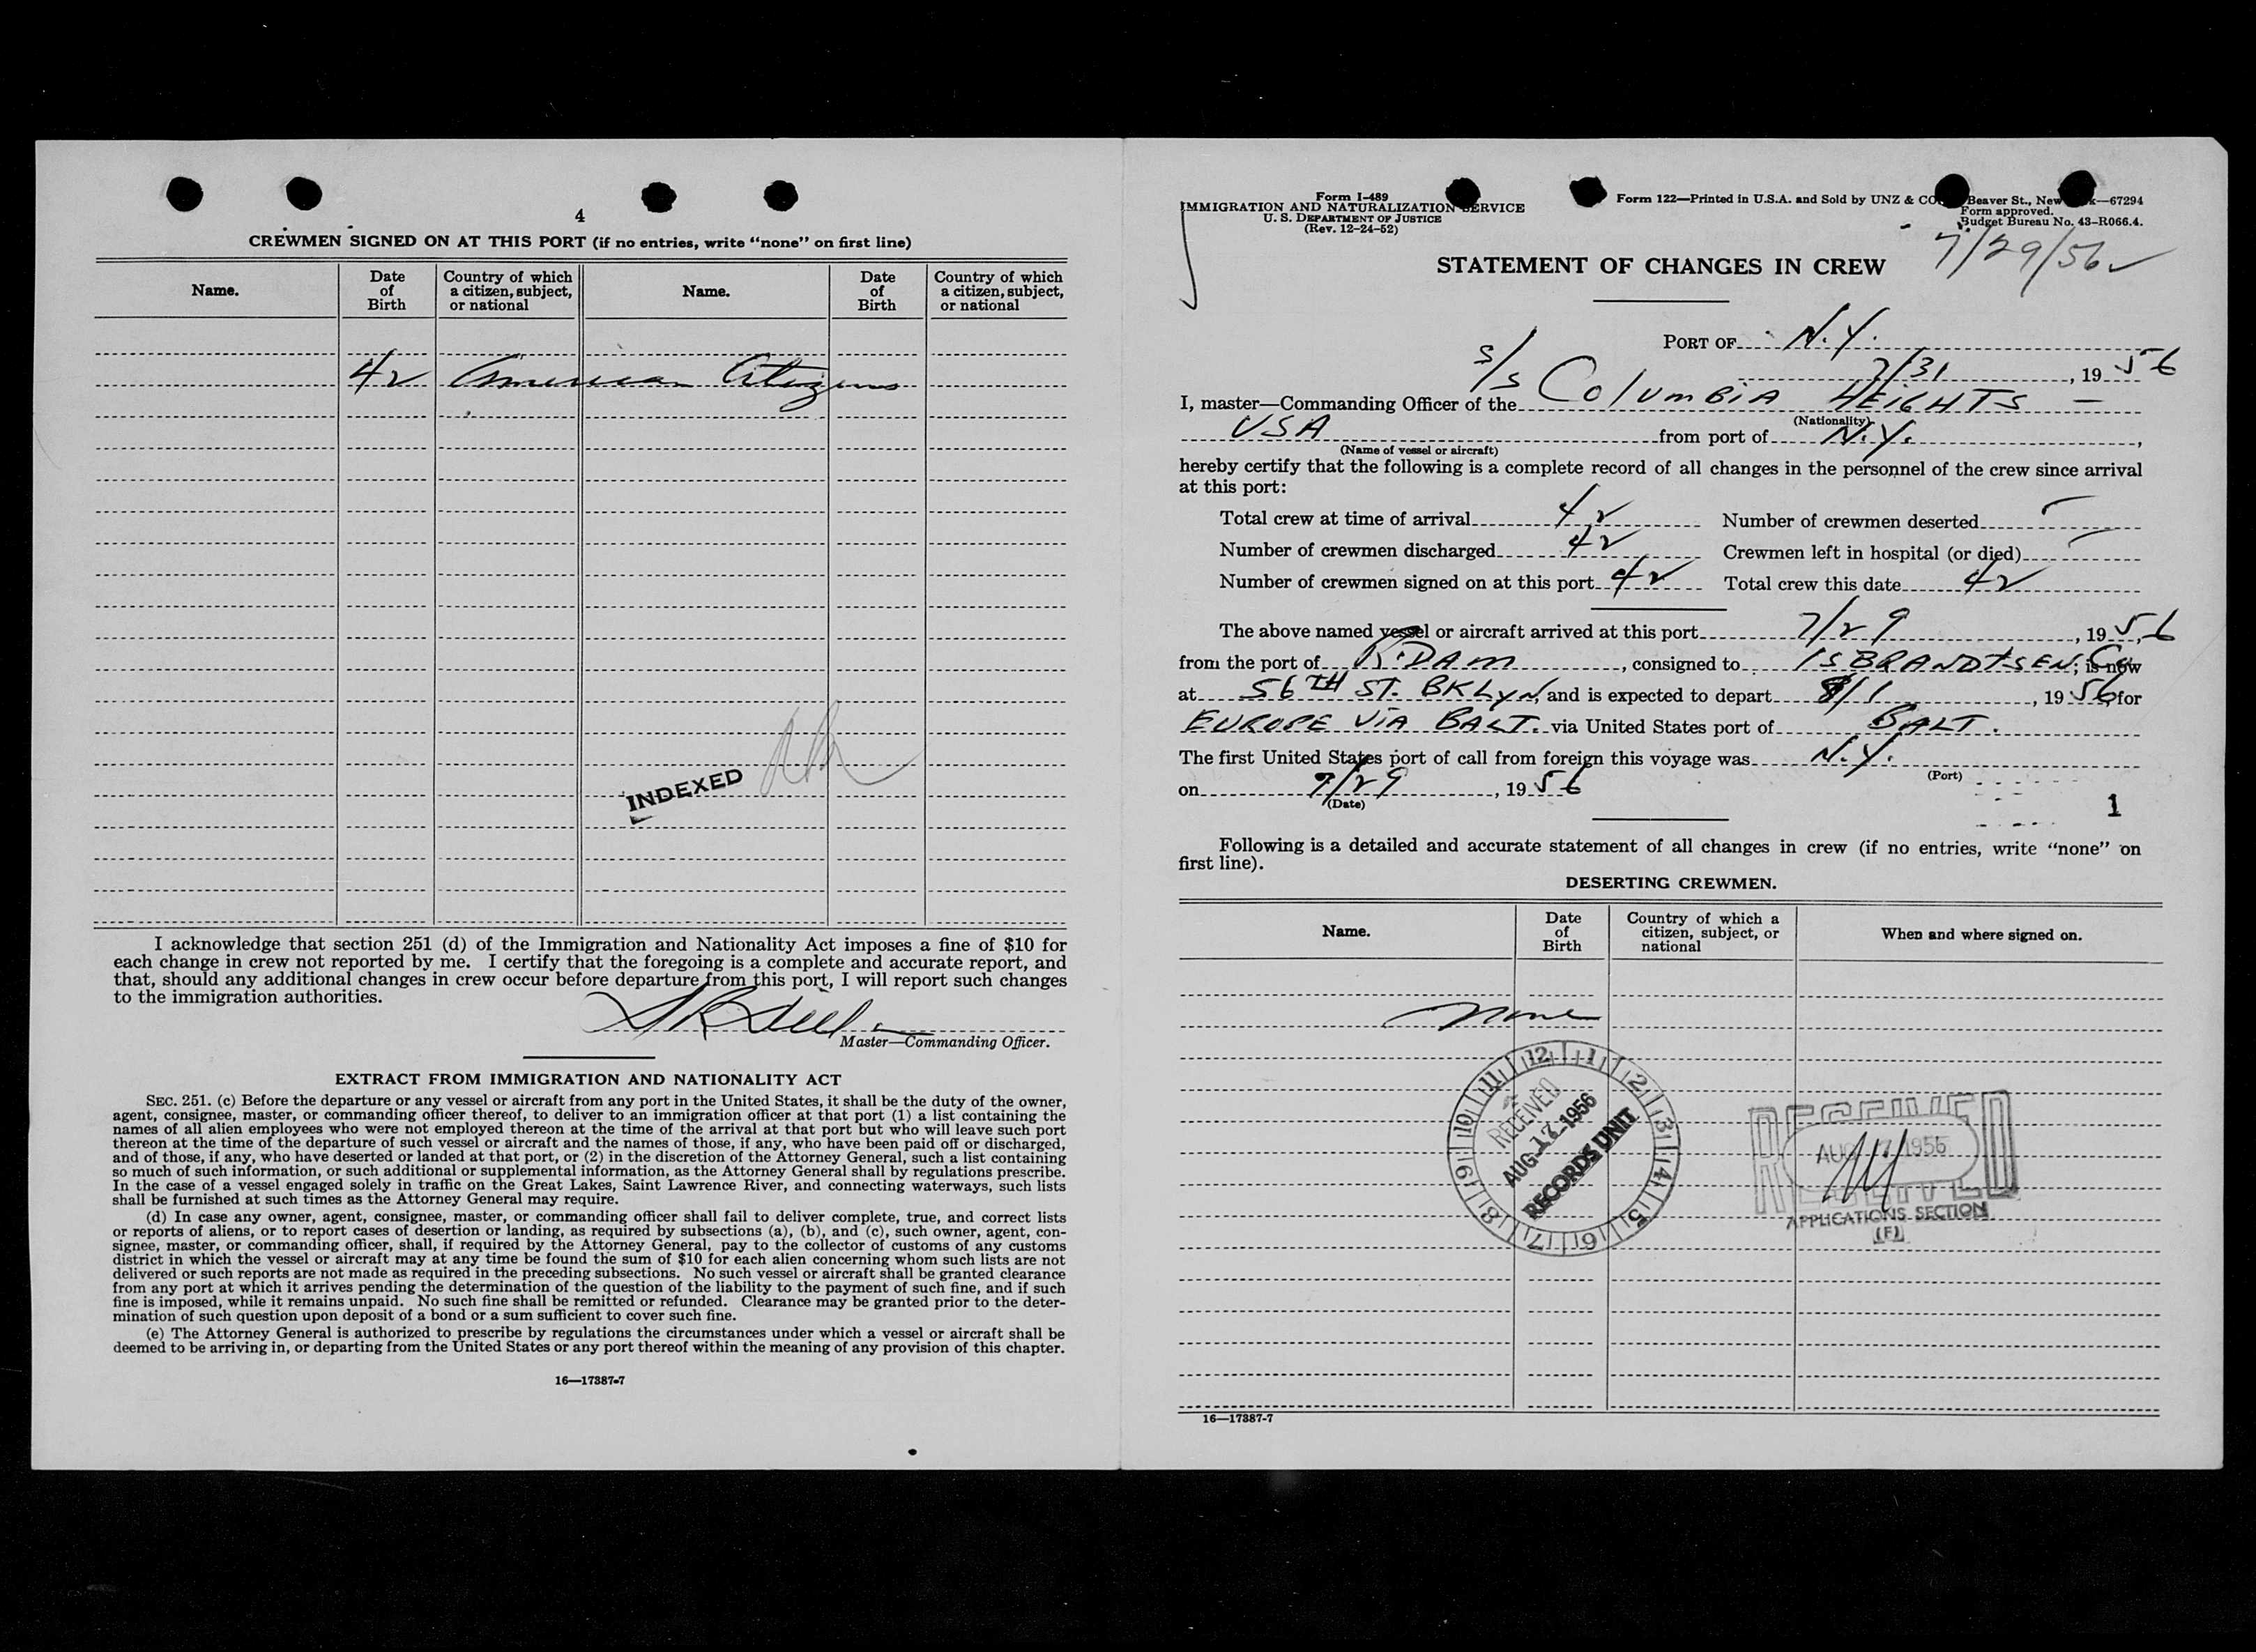 4
CREWMEN SIGNED ON AT THIS PORT (if no entries, write “none” on first line)
Name. Date of Birth Country of which a citizen, subject, or national Name. Date of Birth Country of which a citizen, subject, or national
42 American Citizens
INDEXED
I acknowledge that section 251 (d) of the Immigration and Nationality Act imposes a fine of $10 for
each change in crew not reported by me. I certify that the foregoing is a complete and accurate report, and
that, should any additional changes in crew occur before departure from this port, I will report such changes
to the immigration authorities.
Master—Commanding Officer.
EXTRACT FROM IMMIGRATION AND NATIONALITY ACT
SEC. 251. (c) Before the departure or any vessel or aircraft from any port in the United States, it shall be the duty of the owner,
agent, consignee, master, or commanding officer thereof, to deliver to an immigration officer at that port (1) a list containing the
names of all alien employees who were not employed thereon at the time of the arrival at that port but who will leave such port
thereon at the time of the departure of such vessel or aircraft and the names of those, if any, who have been paid off or discharged,
and of those, if any, who have deserted or landed at that port, or (2) in the discretion of the Attorney General, such a list containing
so much of such information, or such additional or supplemental information, as the Attorney General shall by regulations prescribe.
In the case of a vessel engaged solely in traffic on the Great Lakes, Saint Lawrence River, and connecting waterways, such lists
shall be furnished at such times as the Attorney General may require.
(d) In case any owner, agent, consignee, master, or commanding officer shall fail to deliver complete, true, and correct lists
or reports of aliens, or to report cases of desertion or landing, as required by subsections (a), (b), and (c), such owner, agent, con-
signee, master, or commanding officer, shall, if required by the Attorney General, pay to the collector of customs of any customs
district in which the vessel or aircraft may at any time be found the sum of $10 for each alien concerning whom such lists are not
delivered or such reports are not made as required in the preceding subsections. No such vessel or aircraft shall be granted clearance
from any port at which it arrives pending the determination of the question of the liability to the payment of such fine, and if such
fine is imposed, while it remains unpaid. No such fine shall be remitted or refunded. Clearance may be granted prior to the deter-
mination of such question upon deposit of a bond or a sum sufficient to cover such fine.
(e) The Attorney General is authorized to prescribe by regulations the circumstances under which a vessel or aircraft shall be
deemed to be arriving in, or departing from the United States or any port thereof within the meaning of any provision of this chapter.
16—17387-7
Form I-489
IMMIGRATION AND NATURALIZATION SERVICE
U. S. DEPARTMENT OF JUSTICE
(Rev. 12-24-52)
Form 122—Printed in U.S.A. and Sold by UNZ & CO. Beaver St., New —67294
Form approved.
Budget Bureau No. 43-R066.4.
7/29/56
STATEMENT OF CHANGES IN CREW
PORT OF N.Y.
7/31, 1956
I, master—Commanding Officer of the S/S COLUMBIA HEIGHTS —
(Nationality)
USA from port of N.Y.,
(Name of vessel or aircraft)
hereby certify that the following is a complete record of all changes in the personnel of the crew since arrival
at this port:
Total crew at time of arrival 42 Number of crewmen deserted —
Number of crewmen discharged 42 Crewmen left in hospital (or died) —
Number of crewmen signed on at this port 42 Total crew this date 42
The above named vessel or aircraft arrived at this port 7/29, 1956
from the port of R'DAM, consigned to ISBRANDTSEN Co; is now
at 56TH ST. BKLYN, and is expected to depart 8/1, 1956 for
EUROPE VIA BALT. via United States port of BALT.
The first United States port of call from foreign this voyage was N.Y.
(Port)
on 7/29, 1956
(Date)
1
Following is a detailed and accurate statement of all changes in crew (if no entries, write “none” on
first line).
DESERTING CREWMEN.
Name. Date of Birth Country of which a citizen, subject, or national When and where signed on.
None
12 1 2 3 4 5 6 7 8 9 10 11
RECEIVED
AUG 17 1956
RECORDS UNIT
RECEIVED
AUG 17 1956
APPLICATIONS SECTION
(F)
16—17387-7